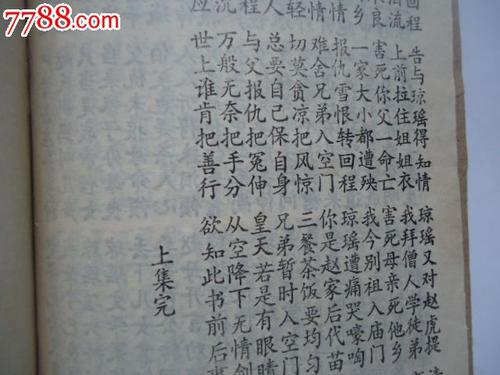 7788.com
回程 告与琼瑶得知情 琼瑶又对赵虎提
流 上前拉住姐姐衣 我拜僧人学徒弟
良 害死你父一命亡 害死母亲死他乡
乡 一家大小都遭殃 我今别祖入庙门
情 报仇雪恨转回程 琼瑶遭痛哭嚎啕
情 难舍兄弟入空门 你是赵家后代苗
轻 切莫贪凉把风惊 三餐茶饭要均匀
人 总要自己保自身 兄弟暂时入空门
程 与父报仇把冤伸 皇天若是有眼睛
沉 万般无奈把手分 从空降下无情剑
应 世上谁肯把善行 欲知此书前后事
上集完